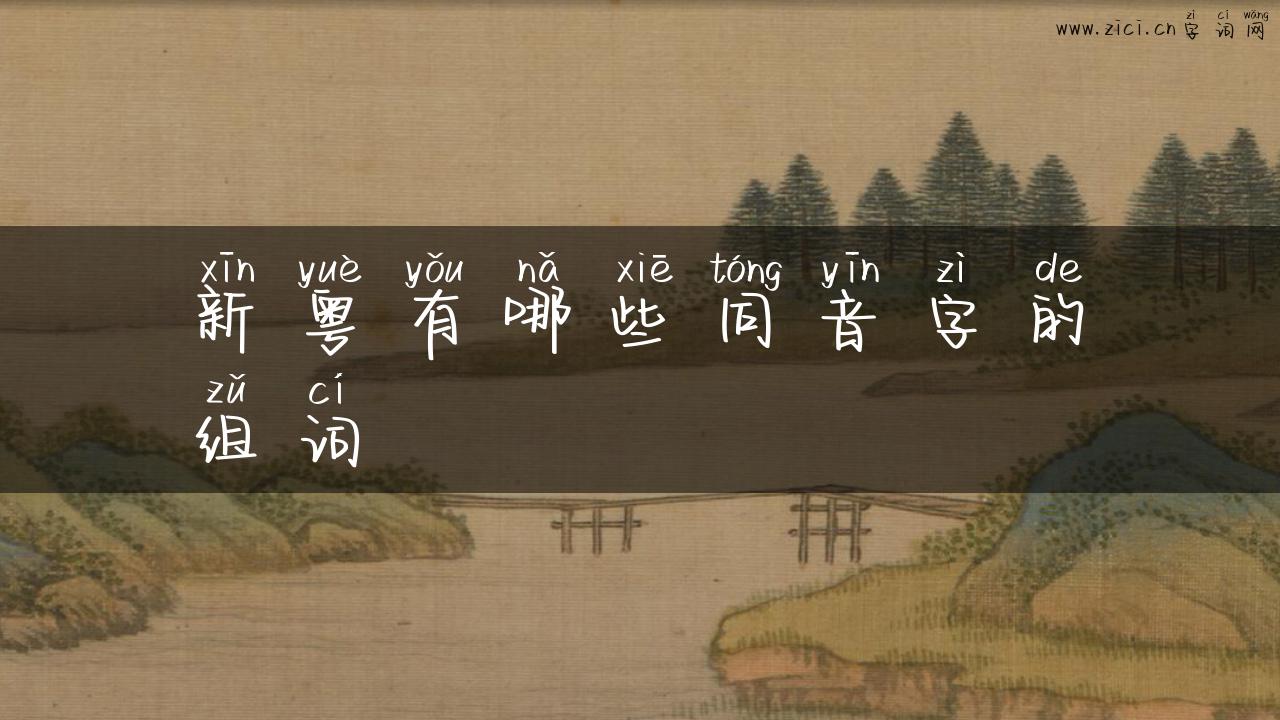 zì cí wǎng
www.zici.cn字词网
xīn yuè yǒu nǎ xiē tóng yīn zì de
新粤有哪些同音字的
zǔ cí
组词